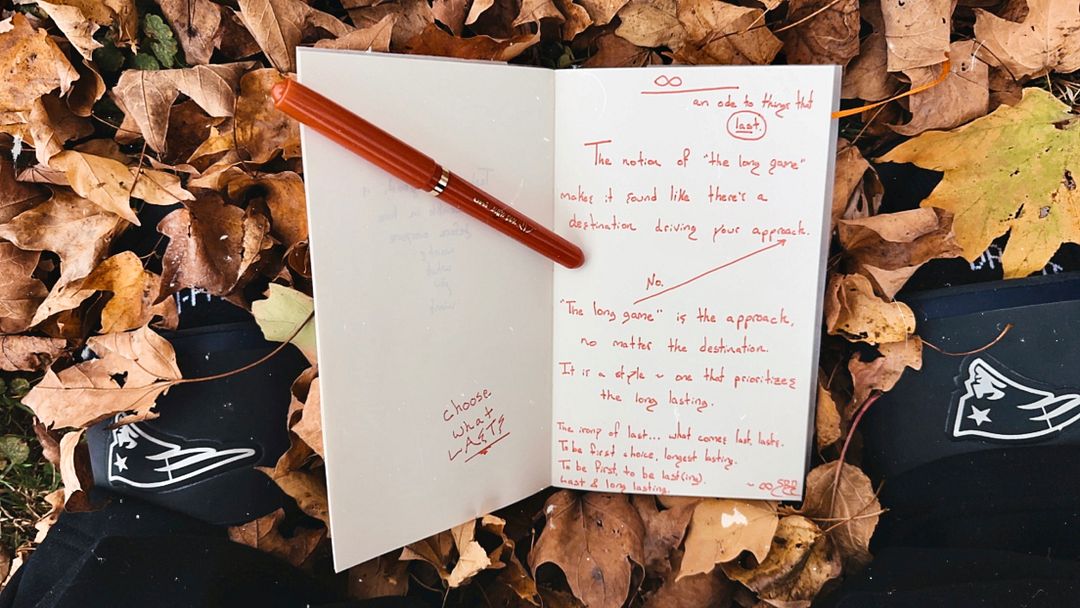 choose
what
LASTS
∞
an ode to things that
last.
The notion of "the long game"
makes it sound like there's a
destination driving your approach.
No.
"The long game" is the approach,
no matter the destination.
It is a style ~ one that prioritizes
the long lasting.
The irony of last... what comes last, lasts.
To be first choice, longest lasting.
To be first, to be last(ing).
Last & long lasting.